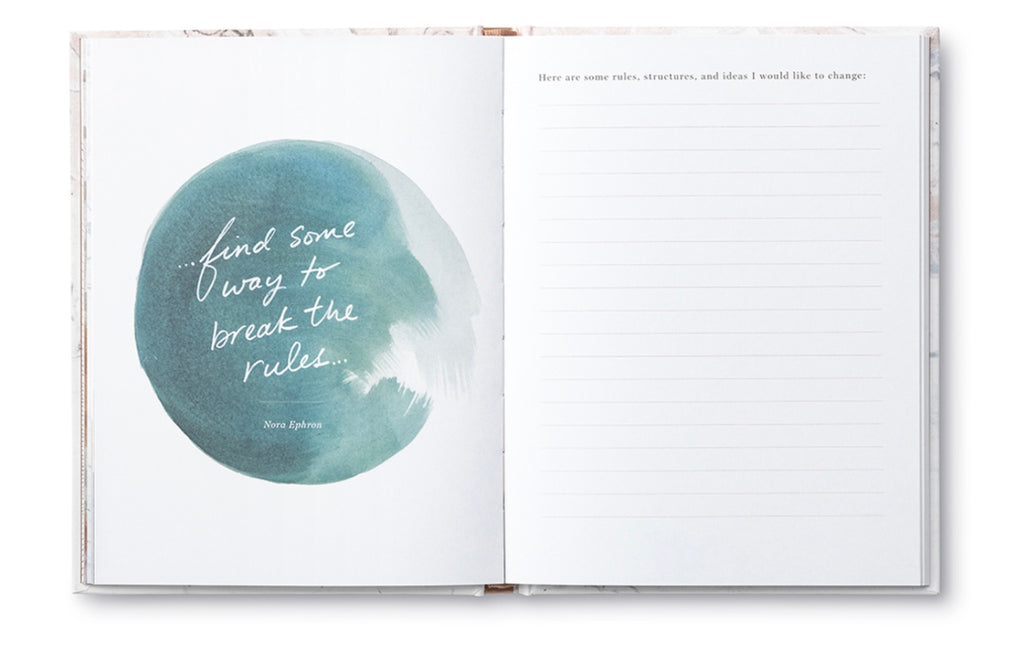 ...find some
way to
break the
rules...
Nora Ephron
Here are some rules, structures, and ideas I would like to change: